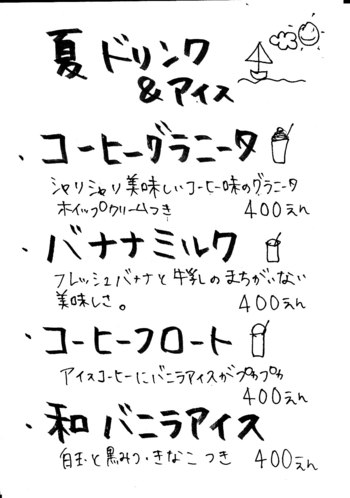 夏ドリンク
&アイス
・コーヒーグラニータ
シャリシャリ美味しいコーヒー味のグラニータ
ホイップクリームつき 400えん
・バナナミルク
フレッシュバナナと牛乳のまちがいない
美味しさ。 400えん
・コーヒーフロート
アイスコーヒーにバニラアイスがプカプカ
400えん
・和バニラアイス
白玉と黒みつ・きなこつき 400えん